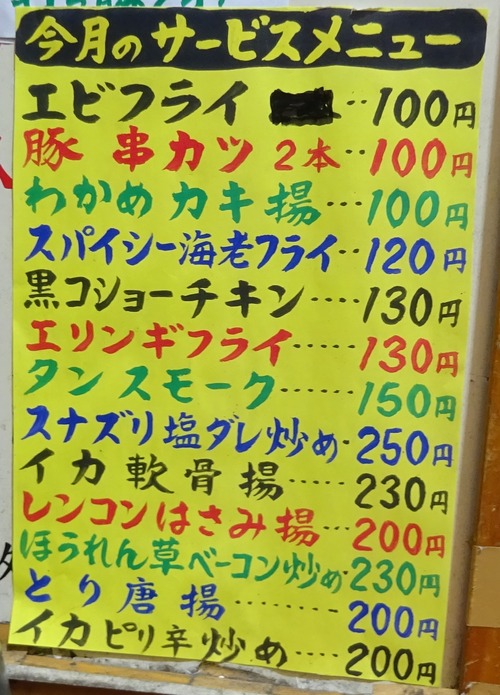 今月のサービスメニュー
エビフライ ‥100円
豚 串カツ 2本‥100円
わかめ カキ揚‥100円
スパイシー海老フライ‥120円
黒コショーチキン‥‥130円
エリンギフライ‥‥130円
タンスモーク‥‥‥150円
スナズリ塩ダレ炒め‥250円
イカ軟骨揚‥‥230円
レンコンはさみ揚‥‥200円
ほうれん草ベーコン炒め‥230円
とり唐揚‥‥‥‥200円
イカピリ辛炒め‥‥200円